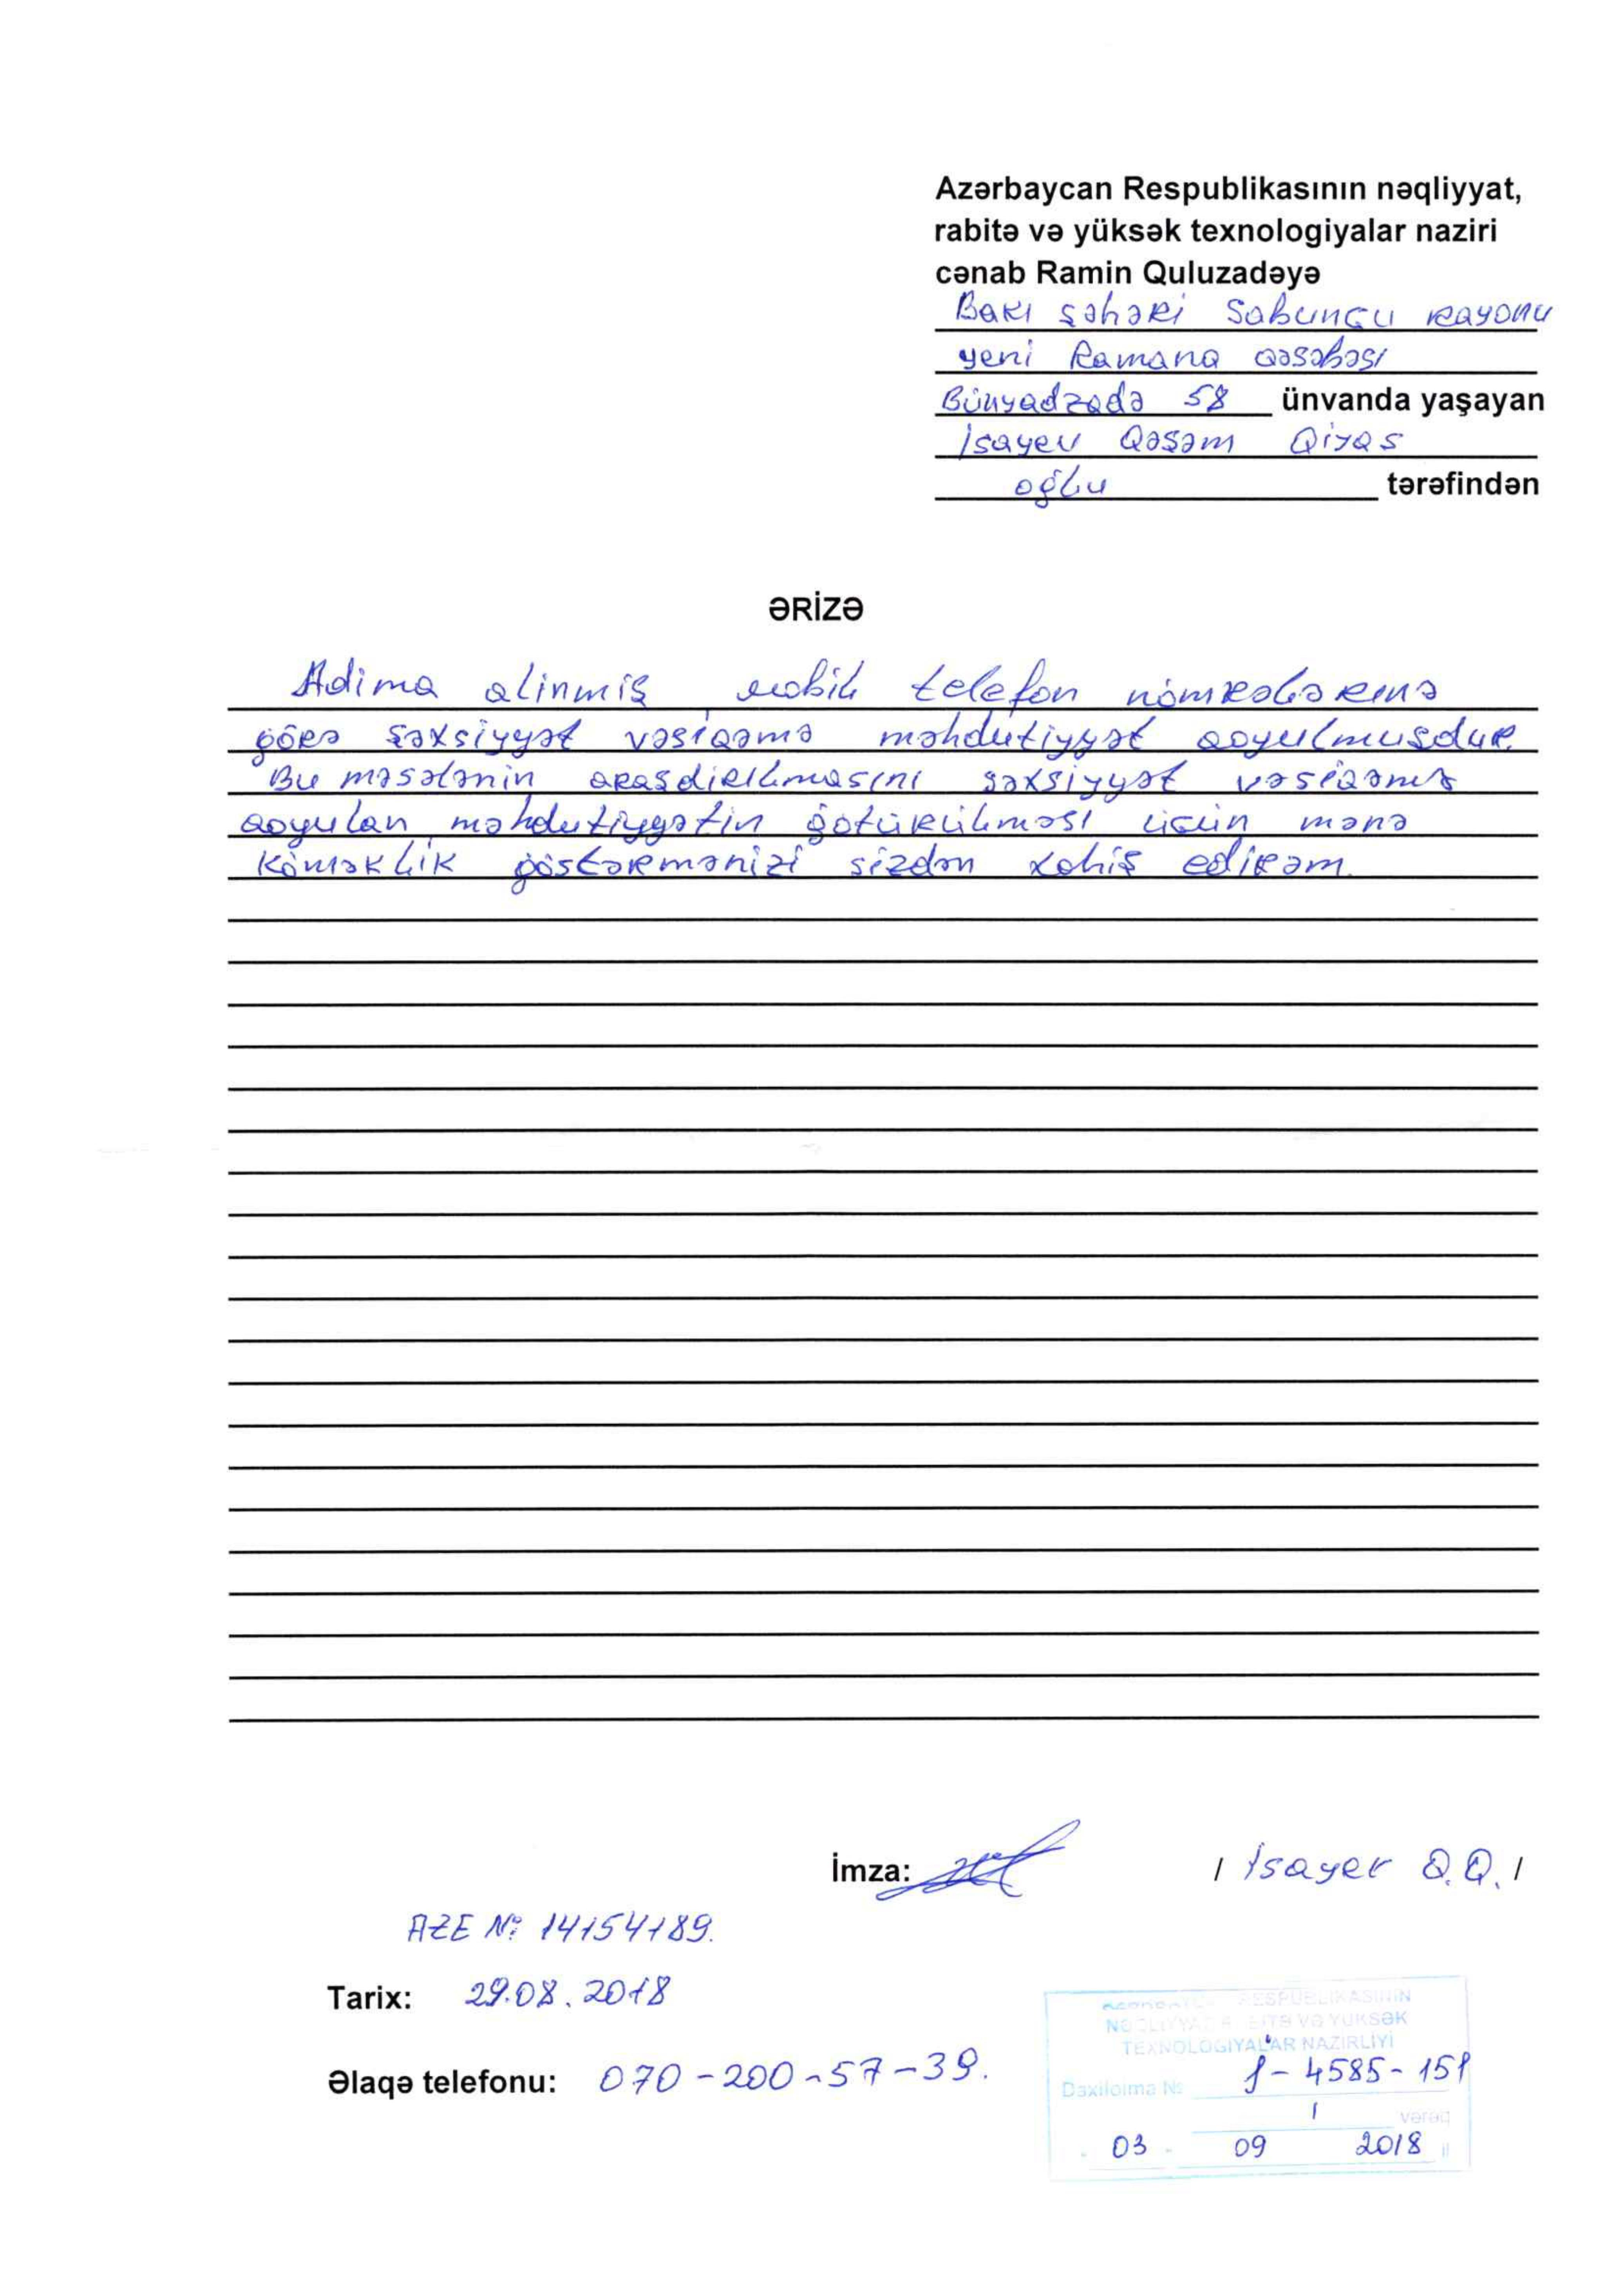 Azərbaycan Respublikasının nəqliyyat,
rabitə və yüksək texnologiyalar naziri
cənab Ramin Quluzadəyə
Bakı şəhəri Sabunçu rayonu
yeni Ramana qəsəbəsi
Bünyadzadə 58 ünvanda yaşayan
İsayev Qəşəm Qiyas
oğlu tərəfindən
ƏRİZƏ
Adima alinmiş mobil telefon nömrələrinə
görə şəxsiyyət vəsiqəmə məhdutiyyət qoyulmuşdur.
Bu məsələnin araşdirilmasını şəxsiyyət vəsiqəmə
qoyulan məhdutiyyətin götürülməsi üçün mənə
köməklik göstərmənizi sizdən xahiş edirəm.
İmza: / İsayev Q.Q. /
AZE № 14154189.
Tarix: 29.08.2018
Əlaqə telefonu: 070-200-57-39.
RESPUBLİKASININ
VƏ YÜKSƏK
TEXNOLOGİYALAR NAZİRLİYİ
Daxilolma № 4585-
1 vərəq
03 09 2018 il